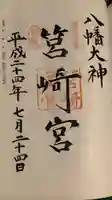 八幡大神
筥崎宮
平成二十四年七月二十四日